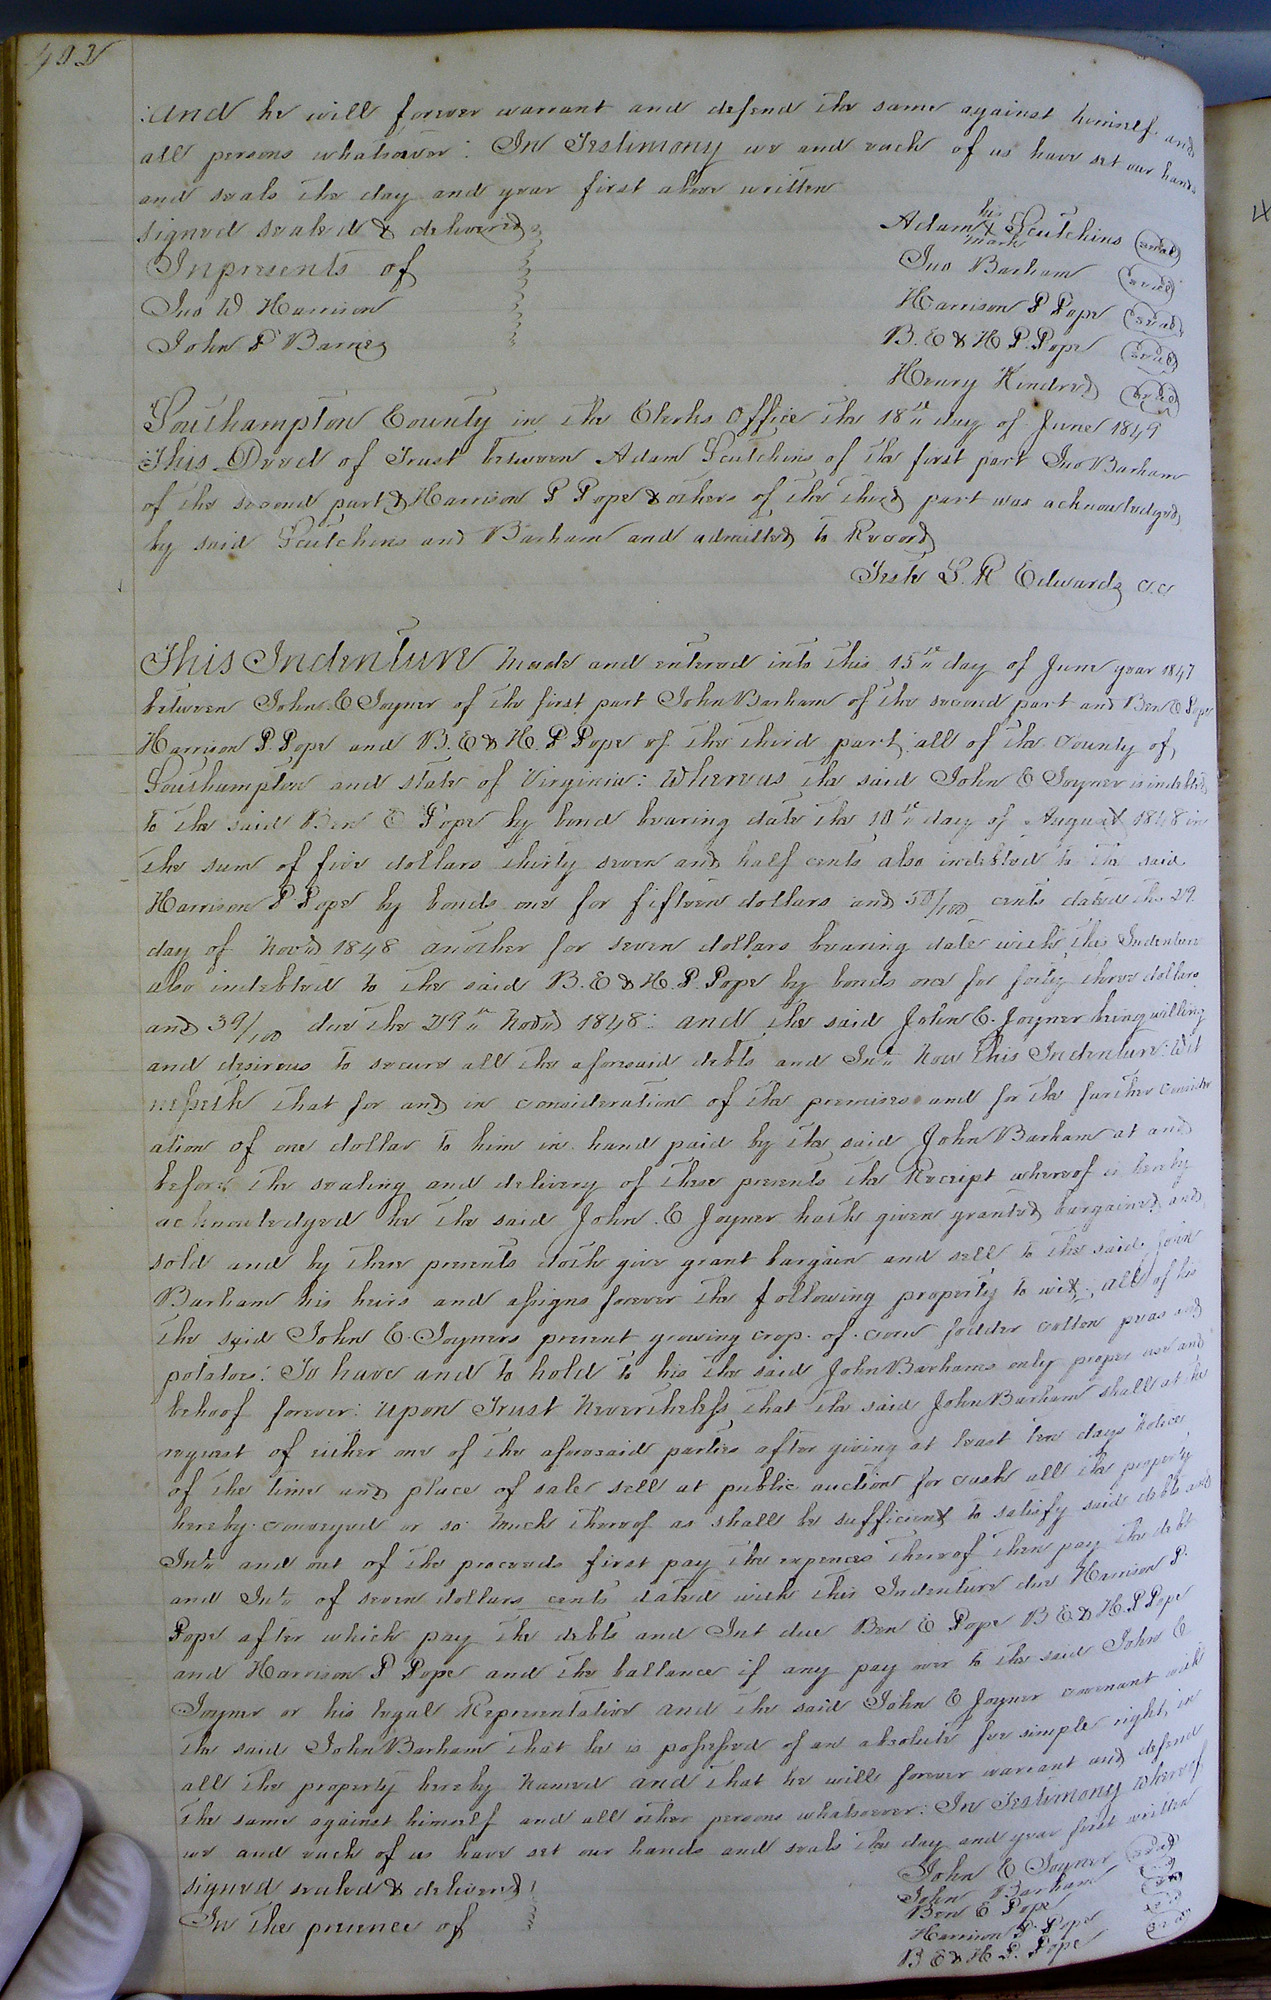 and he will forever warrant and defend the same against himself and
all persons whatsoever: In Testimony we and each of us have set our hands
and seals the day and year first above written
signed sealed & delivered
Inpresents of
Jno W Harrison
John P Barnes
his
Adam X Scutchins seal
mark
Jno Barham seal
Harrison P Pope seal
B. E & H P. Pope seal
Henry Kindred seal
Southampton County in the Clerks Office the 18th day of June 1849
This Deed of Trust between Adam Scutchins of the first part Jno Barham
of the second part & Harrison P Pope & others of the third part was acknowledged
by said Scutchins and Barham and admitted to Record
Teste L. R Edwards c.c.
This Indenture Made and entered into this 15th day of June year 1847
between John E Joyner of the first part John Barham of the second part and Ben E Pope
Harrison P. Pope and B. E & H. P Pope of the third part: all of the County of
Southampton and state of Virginia: Whereas the said John E Joyner is indebted
to the said Ben E Pope by bond bearing date the 10th day of August 1848 in
the sum of five dollars thirty seven and half cents also indebted to the said
Harrison P Pope by bonds one for fifteen dollars and 50/100 cents dated the 29
day of Novd 1848 another for seven dollars bearing date with this Indenture
also indebted to the said B. E & H. P. Pope by bonds one for forty three dollars
and 39/100 due the 29th Novd 1848: and the said John E. Joyner being willing
and desirous to secure all the aforesaid debts and Int. Now this Indenture: Wit
nesseth that for and in consideration of the premises and for the further consider
ation of one dollar to him in hand paid by the said John Barham at and
before the sealing and delivery of these presents the Receipt whereof is hereby
acknowledged he the said John. E Joyner hath given granted bargained and
sold and by these presents doth give grant bargain and sell to the said John
Barham his heirs and assigns forever the following property to wit, all of his
the said John E. Joyners present growing crop. of. corn fodder cotten peas and
potatoes: To have and to hold to his the said John Barhams only proper use and
behoof forever: upon Trust Nevertheless that the said John Barham shall at the
request of either one of the aforesaid parties after giving at least ten days Notice
of the time and place of sale sell at public auction for cash all the property
hereby conveyed or so much thereof as shall be sufficient to satisfy said debts and
Int. and out of the proceeds first pay the expences thereof then pay the debt
and Int. of seven dollars cents dated with this Indenture due Harrison P.
Pope after which pay the debts and Int due Ben E Pope B E & H. P Pope
and Harrison P Pope and the ballance if any pay over to the said John E
Joyner or his legal Representative and the said John E Joyner covenant with
the said John Barham that he is possessed of an absolute fee simple right in
all the property hereby Named and that he will forever warrant and defend
the same against himself and all other persons whatsoever: In Testimony whereof
we and each of us have set our hands and seals the day and year first written
signed sealed & delivered
In the presence of
John E Joyner seal
John Barham seal
Ben E Pope seal
Harrison P. Pope seal
B E & H P. Pope seal